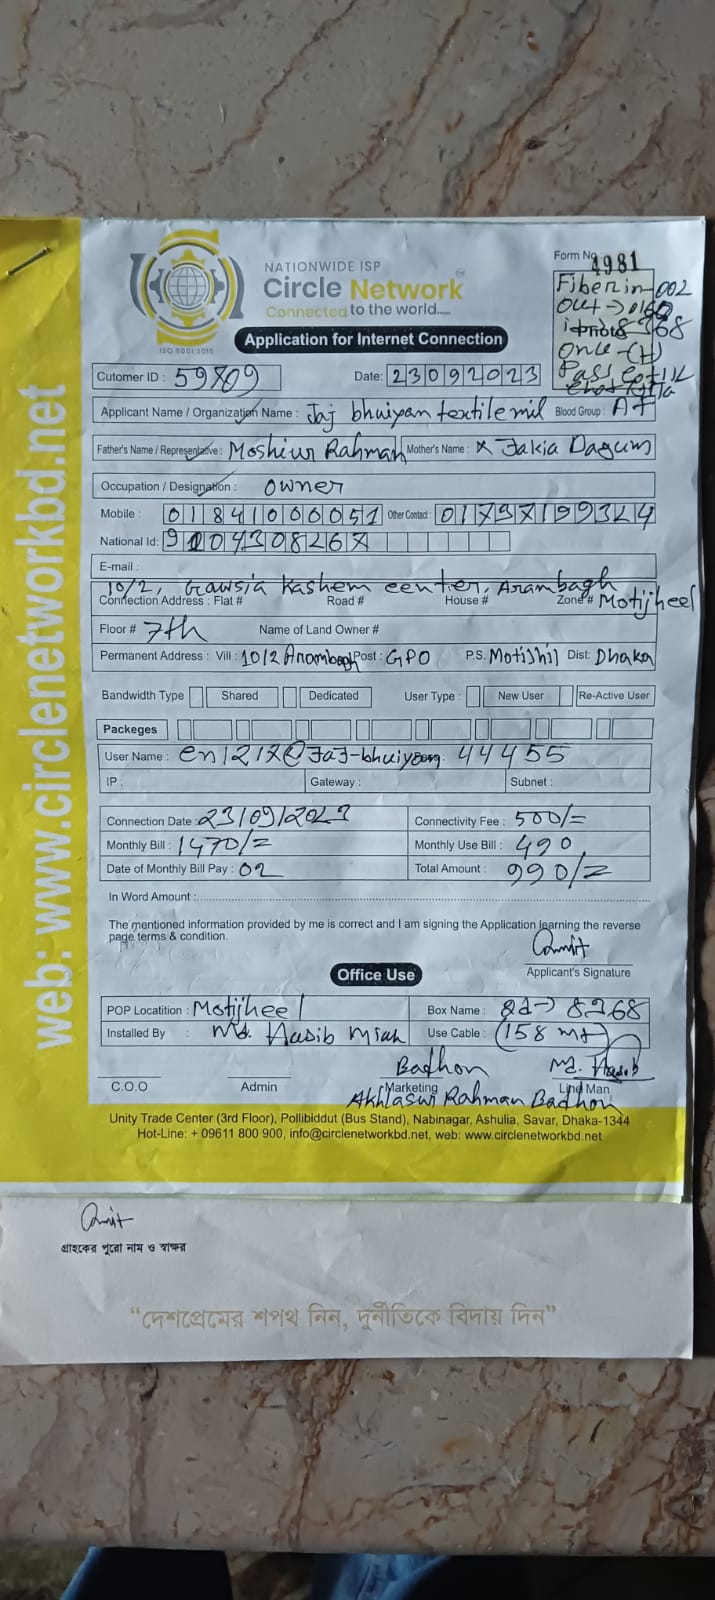 web: www.circlenetworkbd.net
NATIONWIDE ISP
Circle Network
Connected to the world.....
ISO 9001:2015
Application for Internet Connection
Form No 4981
Fiber in-002
Out →
Cutomer ID : 59809
Date: 23092023
Applicant Name / Organization Name : Jaj bhuiyan textile mil Blood Group : A+
Father's Name / Representative : Moshiur Rahman Mother's Name :
Occupation / Designation : owner
Mobile : 01841000051 Other Contact :
National Id:
E-mail :
10/2, Gawsia Kashem center, Arambagh
Connection Address : Flat # Road # House # Zone # Motijheel
Floor # 7th Name of Land Owner #
Permanent Address : Vill : 10/2 Arambagh Post : GPO P.S. Motijhil Dist: Dhaka
Bandwidth Type Shared Dedicated User Type : New User Re-Active User
Packeges
User Name : 44455
IP : Gateway : Subnet :
Connection Date : 23/09/2023 Connectivity Fee : 500/=
Monthly Bill : 1470/= Monthly Use Bill : 490
Date of Monthly Bill Pay : 02 Total Amount : 990/=
In Word Amount :
The mentioned information provided by me is correct and I am signing the Application learning the reverse
page terms & condition.
Applicant's Signature
Office Use
POP Locatition : Motijheel Box Name : 8268
Installed By : Md. Hasib Miah Use Cable : (158 mt)
Badhon Md. Hasib
C.O.O Admin Marketing Line Man
Rahman Badhon
Unity Trade Center (3rd Floor), Pollibiddut (Bus Stand), Nabinagar, Ashulia, Savar, Dhaka-1344
Hot-Line: + 09611 800 900, info@circlenetworkbd.net, web: www.circlenetworkbd.net
গ্রাহকের পুরো নাম ও স্বাক্ষর
“দেশপ্রেমের শপথ নিন, দুর্নীতিকে বিদায় দিন”